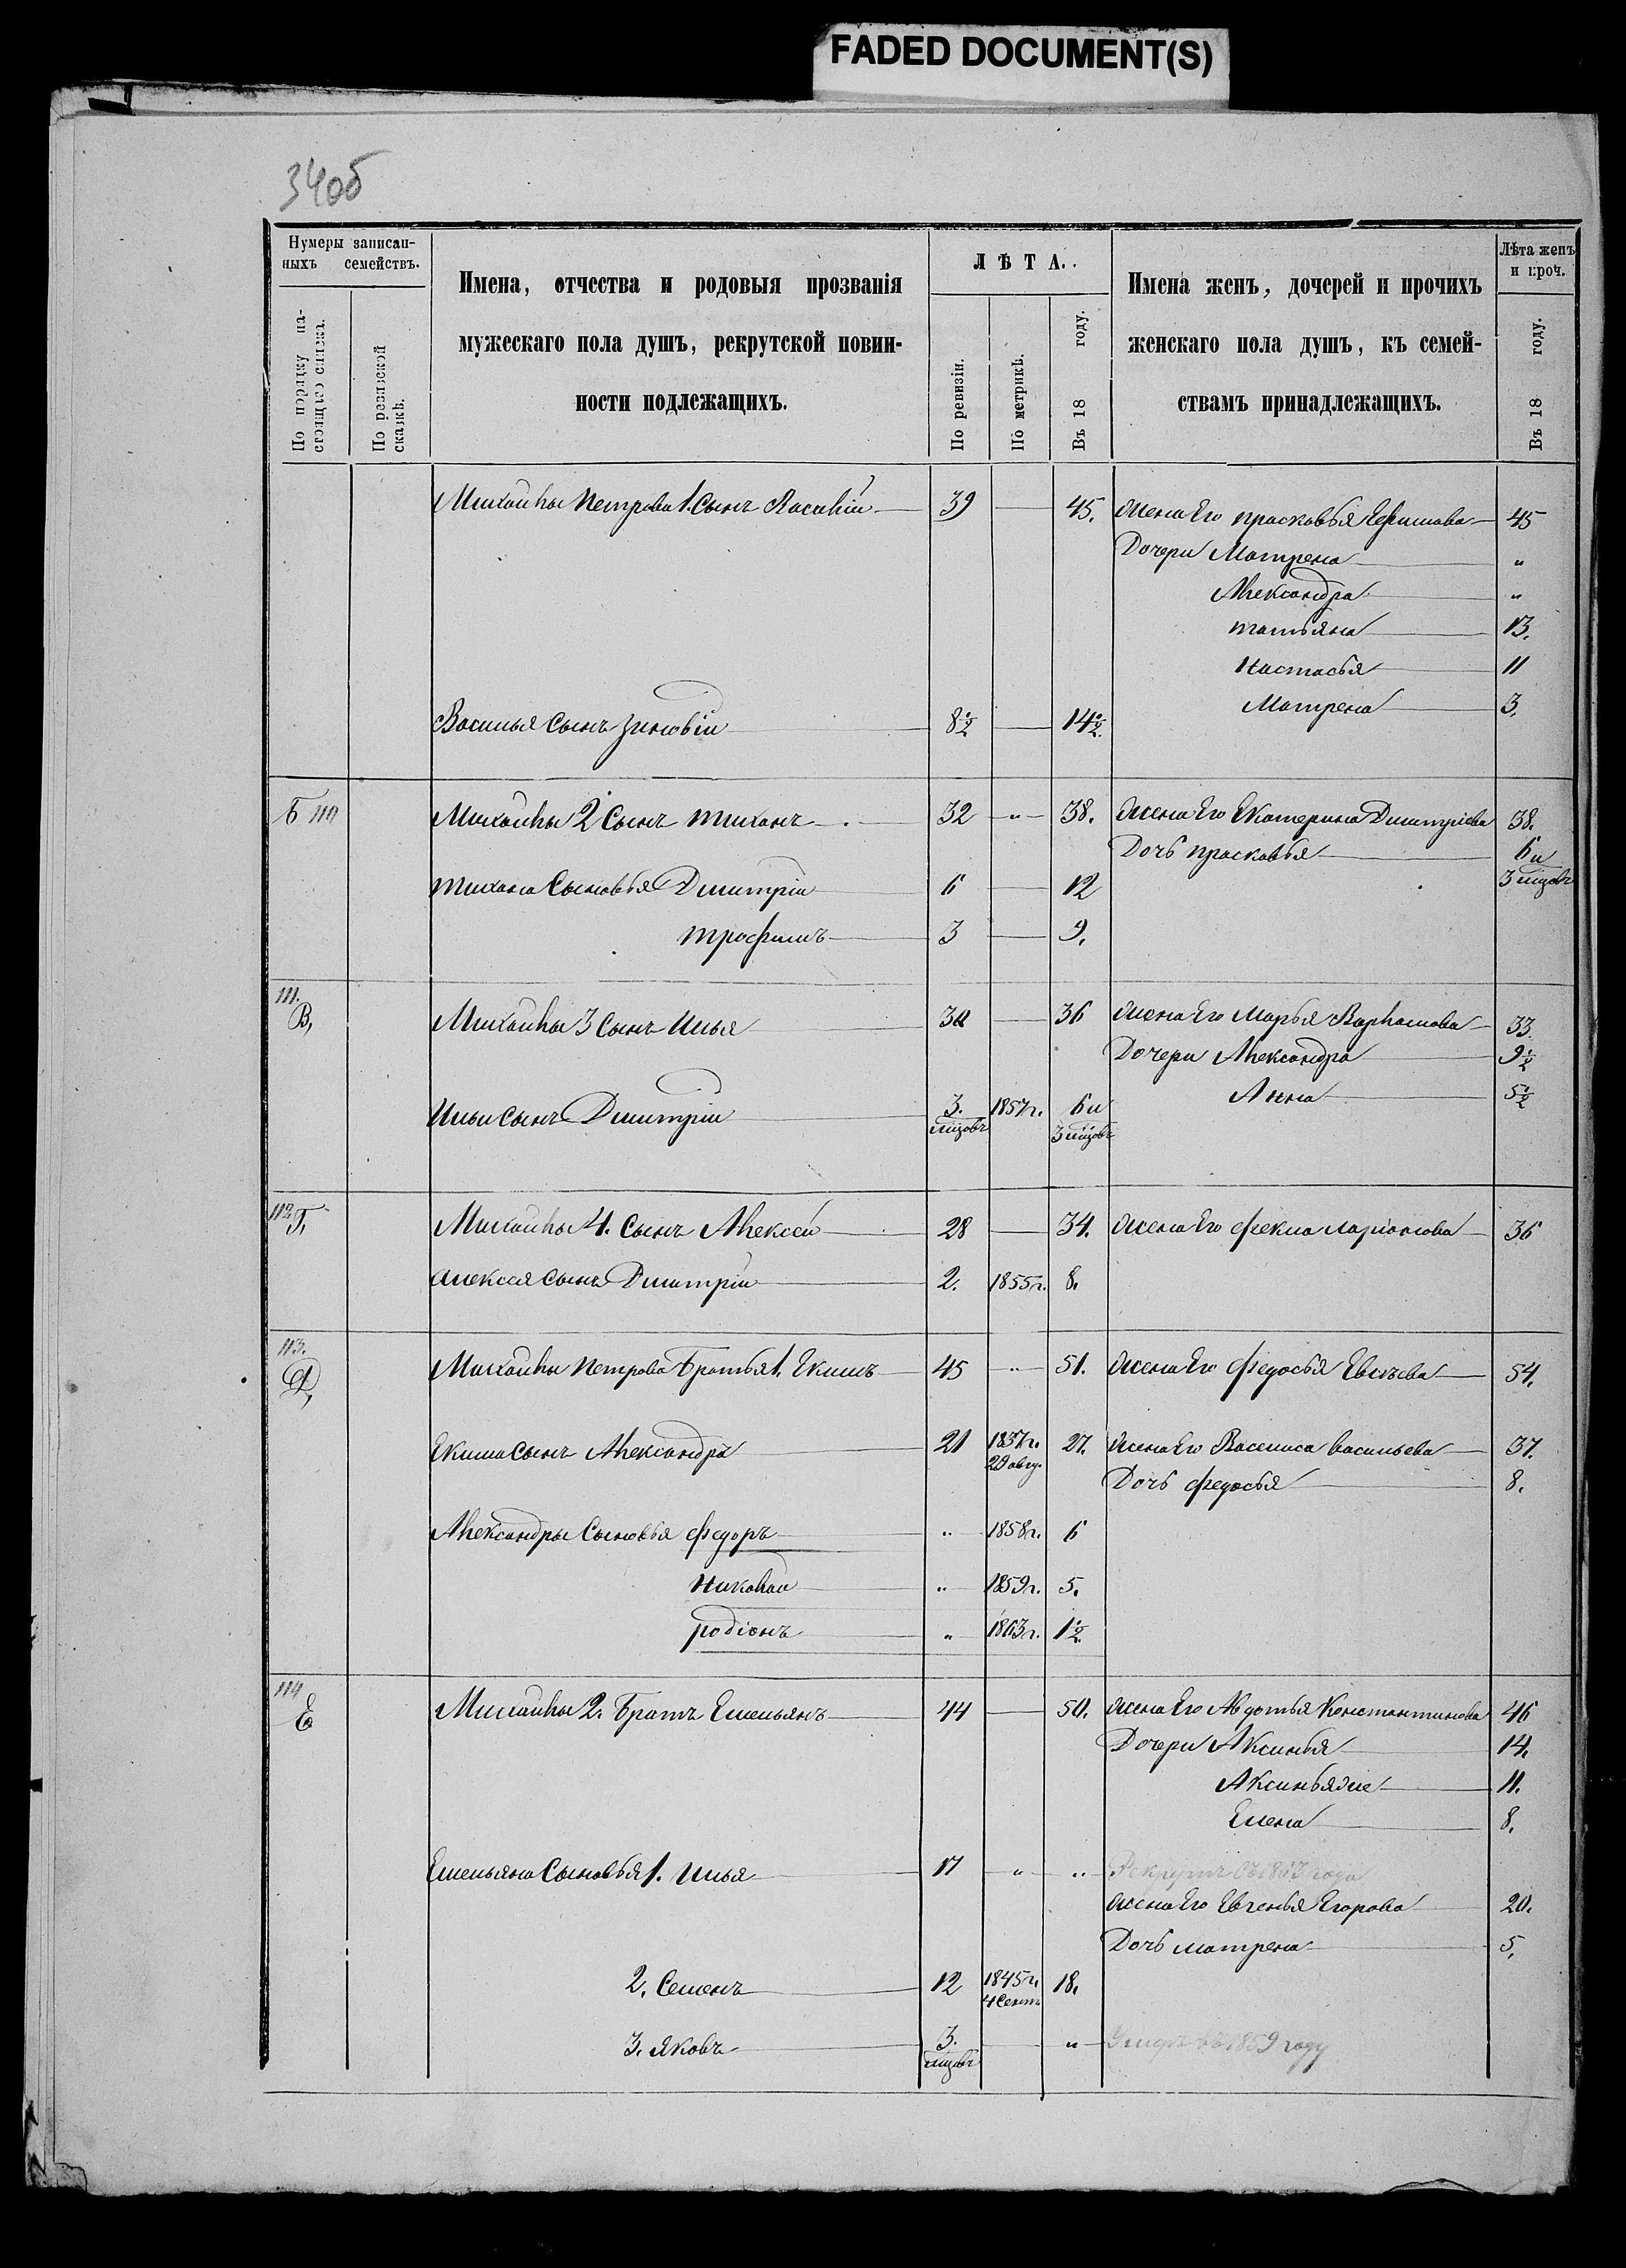 FADED DOCUMENT(S)
340б
Нумеры записан-
ныхъ семействъ.
По порядку на-
стоящаго списка.
По ревизской
сказкѣ.
Имена, отчества и родовыя прозванія
мужескаго пола душъ, рекрутской повин-
ности подлежащихъ.
ЛѢТА.
По ревизіи.
По метрикѣ.
Въ 18 году.
Имена женъ, дочерей и прочихъ
женскаго пола душъ, къ семей-
ствамъ принадлежащихъ.
Лѣта женъ
и проч.
Въ 18 году.
Михайлы Петрова 1. сынъ Василій 39 — 45. Жена Его Прасковья Ефимова 45
Дочери Матрена "
Александра "
Татьяна 13.
Настасья 11
Матрена 3.
Василья Сынъ Зиновій 8½ — 14½.
Б 110 Михайлы 2 Сынъ Тиханъ 32 " 38. Жена Его Екатерина Дмитріева 38.
Дочь Прасковья 6 и
3 мцовъ
Тихана Сыновья Дмитрій 6 — 12
Трофимъ 3 — 9.
111.
В, Михайлы 3 Сынъ Илья 30 — 36 Жена Его Марья Варламова 33
Дочери Александра 9½
Анна 5½
Ильи Сынъ Дмитрій 3. мцовъ 1857 г. 6 и
3 мцовъ
112 Г, Михайлы 4. Сынъ Алексѣй 28 — 34. Жена Его Фекла Ларіонова 36
Алексея Сынъ Дмитрій 2. 1855 г. 8.
113.
Д, Михайлы Петрова Братья 1. Екимъ 45 " 51. Жена Его Федосья Евсѣева 54.
Екима Сынъ Александръ 21 1837 г. 27. Жена Его Васелиса Васильева 37.
29 авгу.
Дочь Федосья 8.
Александры Сыновья Федоръ " 1858 г. 6
Николай " 1859 г. 5.
Родіонъ " 1863 г. 1½.
114
Е Михайлы 2. Братъ Емельянъ 44 — 50. Жена Его Авдотья Константинова 46
Дочери Аксинья 14.
Аксинья же 11.
Елена 8.
Емельяна Сыновья 1. Илья 17 " " Рекрутъ
Жена Его Евгенья Егорова 20.
Дочь Матрена 5.
2. Семенъ 12 1845 г. 18.
4 Сент.
3. Яковъ 3. мцовъ " Умеръ въ 1859 году